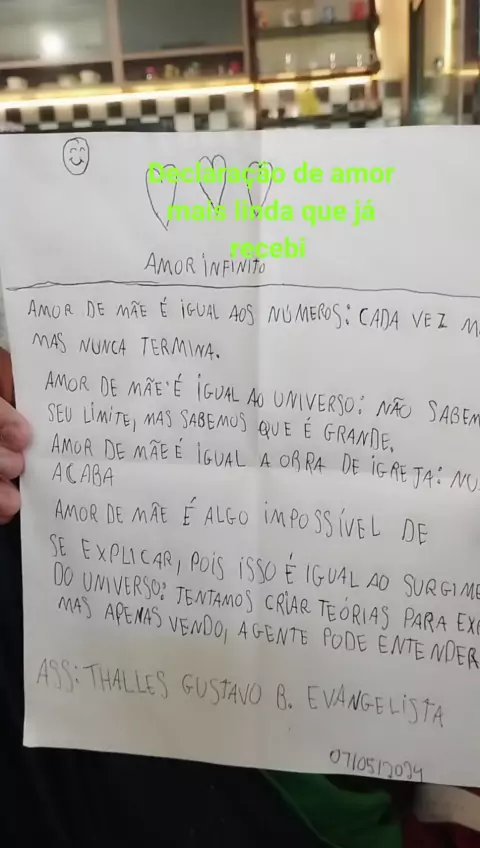 Declaração de amor
mais linda que já
recebi
AMOR INFINITO
AMOR DE MÃE É IGUAL AOS NÚMEROS: CADA VEZ
MAS NUNCA TERMINA.
AMOR DE MÃE É IGUAL AO UNIVERSO: NÃO SABEM
SEU LIMITE, MAS SABEMOS QUE É GRANDE.
AMOR DE MÃE É IGUAL A OBRA DE IGREJA: NU
ACABA
AMOR DE MÃE É ALGO IMPOSSÍVEL DE
SE EXPLICAR, POIS ISSO É IGUAL AO SURGIME
DO UNIVERSO: TENTAMOS CRIAR TEÓRIAS PARA EX
MAS APENAS VENDO, AGENTE PODE ENTENDER
ASS: THALLES GUSTAVO B. EVANGELISTA
07/05/2024